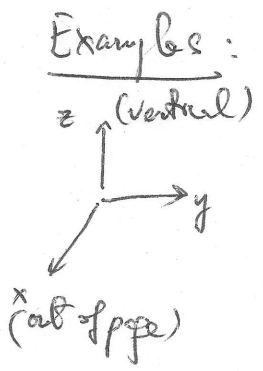 Examples:
z (vertical)
y
x
(out of page)